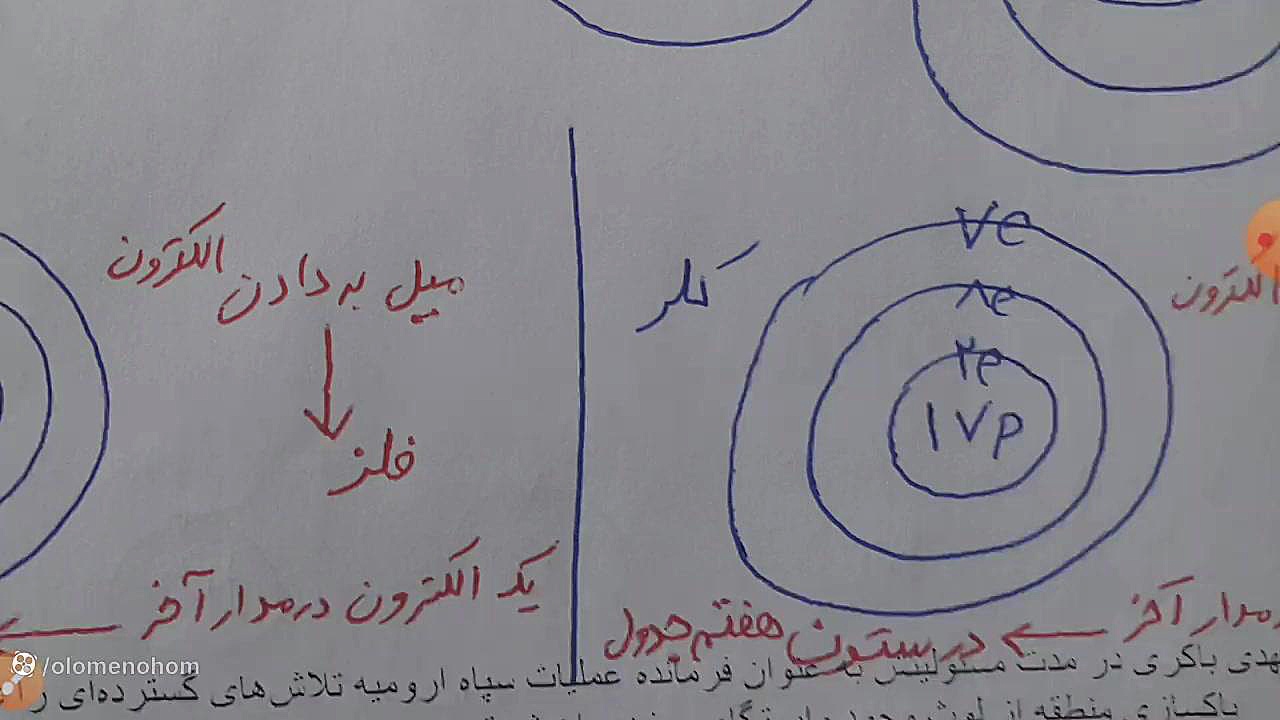 ۷e
۸e
۲e
۱۷p
کلر
الکترون
میل به دادن الکترون
فلز
مدار آخر ← در ستون هفتم جدول
یک الکترون در مدار آخر ←
هدی باکری در مدت مسئولیتش به عنوان فرمانده عملیات سپاه ارومیه تلاش‌های گسترده‌ای را
پاکسازی منطقه از لوث وجود
/olomenohom